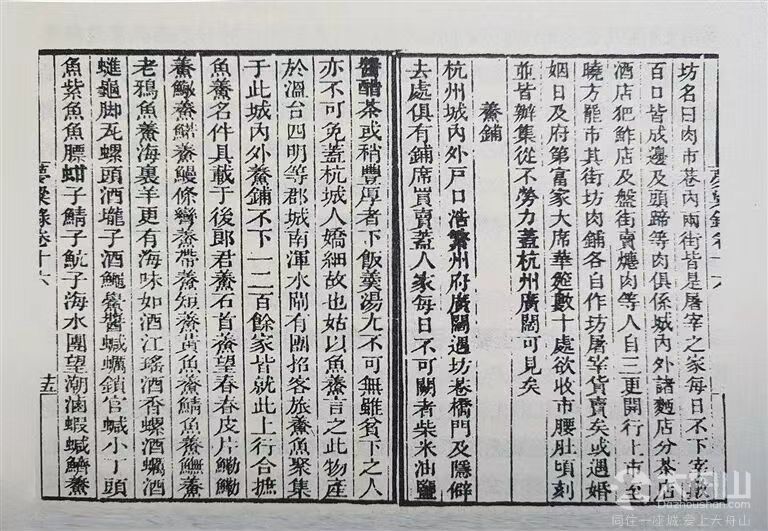 坊名曰肉市巷內兩街皆是屠宰之家每日不下宰數
百口皆成邊及頭蹄等肉俱係城內外諸麵店分茶店
酒店犯鮓店及盤街賣爊肉等人自三更開行上市至
曉方罷市其街坊肉鋪各自作坊屠宰貨賣矣或遇婚
姻日及府第富家大席華筵數十處欲收市腰肚頃刻
並皆辦集從不勞力蓋杭州廣闊可見矣
鯗鋪
杭州城內外戶口浩繁州府廣闊遇坊巷橋門及隱僻
去處俱有鋪席買賣蓋人家每日不可闕者柴米油鹽
醬醋茶或稍豐厚者下飯羹湯尤不可無雖貧下之人
亦不可免蓋杭城人嬌細故也姑以魚鯗言之此物產
於溫台四明等郡城南渾水閘有團招客旅鯗魚聚集
于此城內外鯗鋪不下一二百餘家皆就此上行合摭
魚鯗名件具載于後郎君鯗石首鯗望春春皮片鰳鰳
鯗鱐鯗鱔鯗鰻條彎鯗帶鯗短鯗黃魚鯗鯖魚鯗魟鯗
老鴉魚鯗海裏羊更有海味如酒江瑤酒香螺酒蠣酒
䗩龜脚瓦螺頭酒壠子酒鱦鱟醬䗁蠣鎖官䗁小丁頭
魚紫魚魚膘蚶子鯖子魧子海水團望潮滷蝦䗁鱭鯗
夢粱錄卷十六
十三
夢粱錄卷十六
大舟山
Dazhoushan.com
同在一座城 愛上大舟山